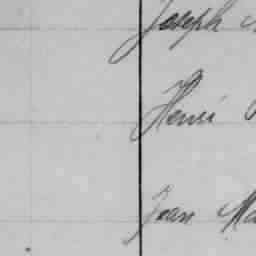 Joseph
Henri
Jean Ma